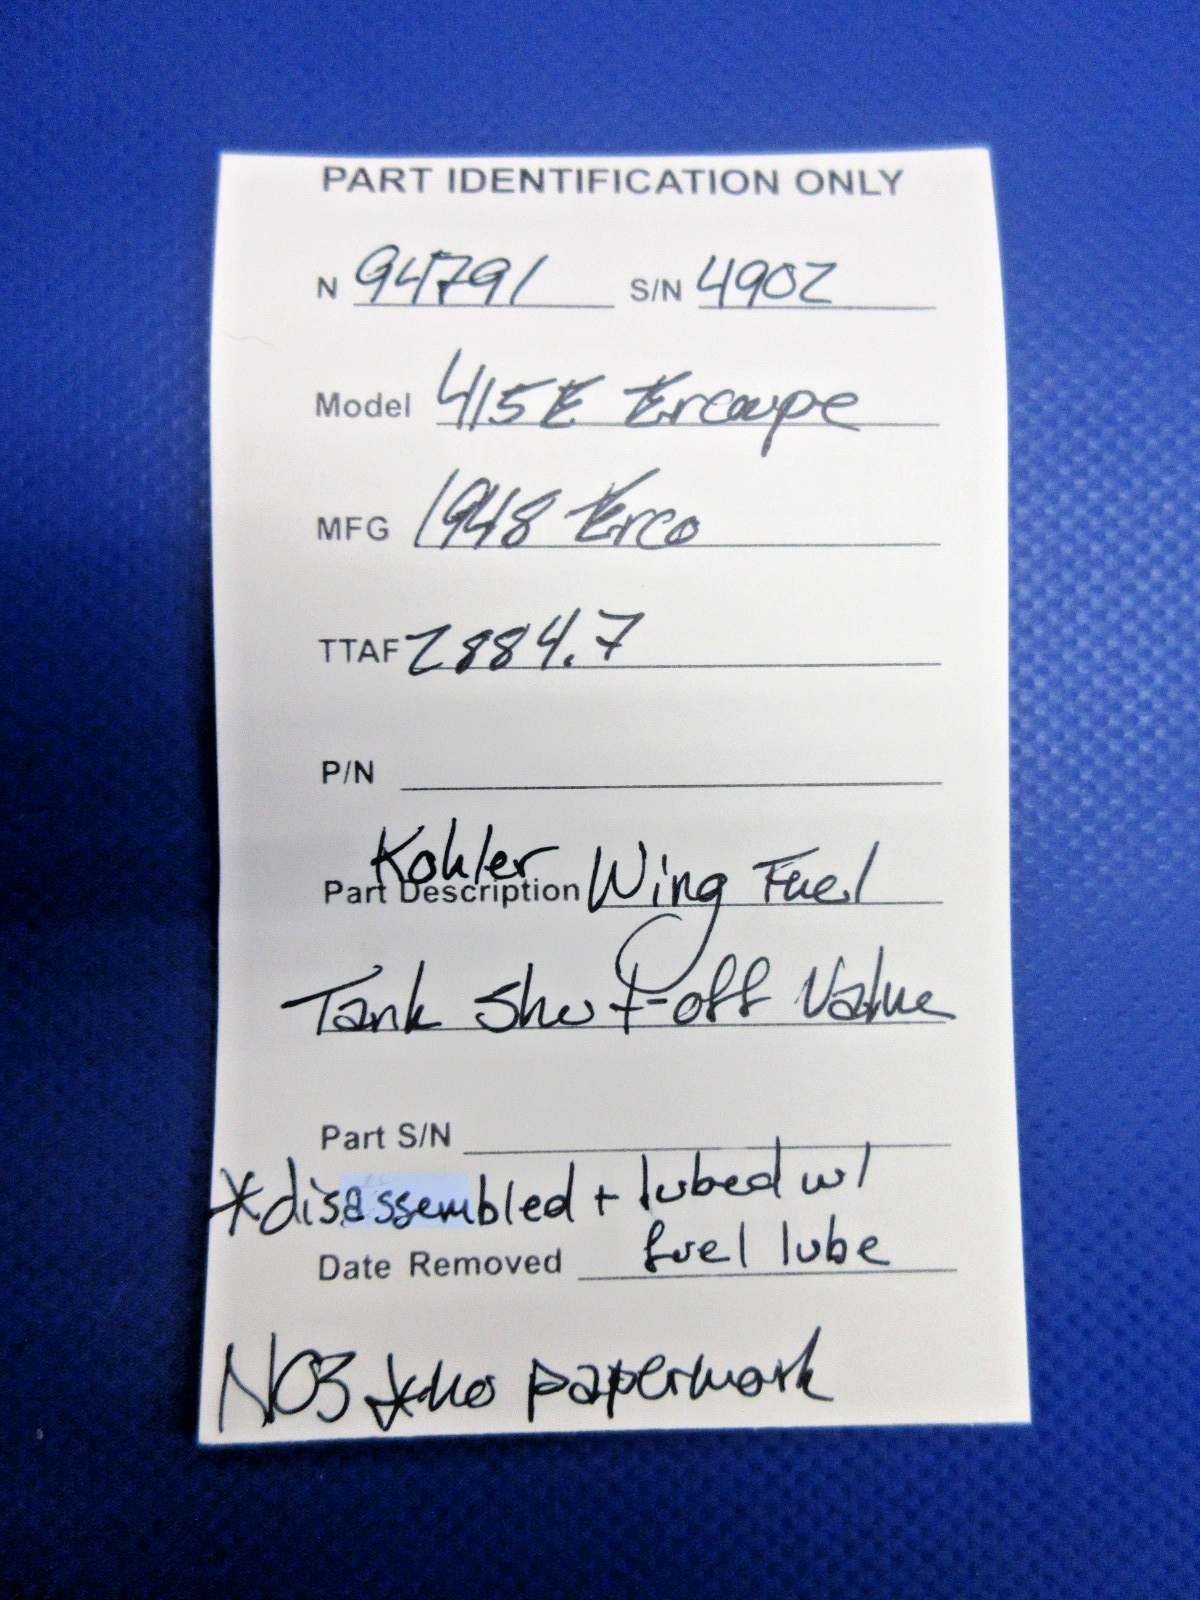 PART IDENTIFICATION ONLY
N 94791 S/N 4902
Model 415E Ercoupe
MFG 1948 Erco
TTAF 2884.7
P/N
Kohler
Part Description Wing Fuel
Tank Shut-off Valve
Part S/N
*disassembled + lubed w/
fuel lube
Date Removed
NOS *no paperwork